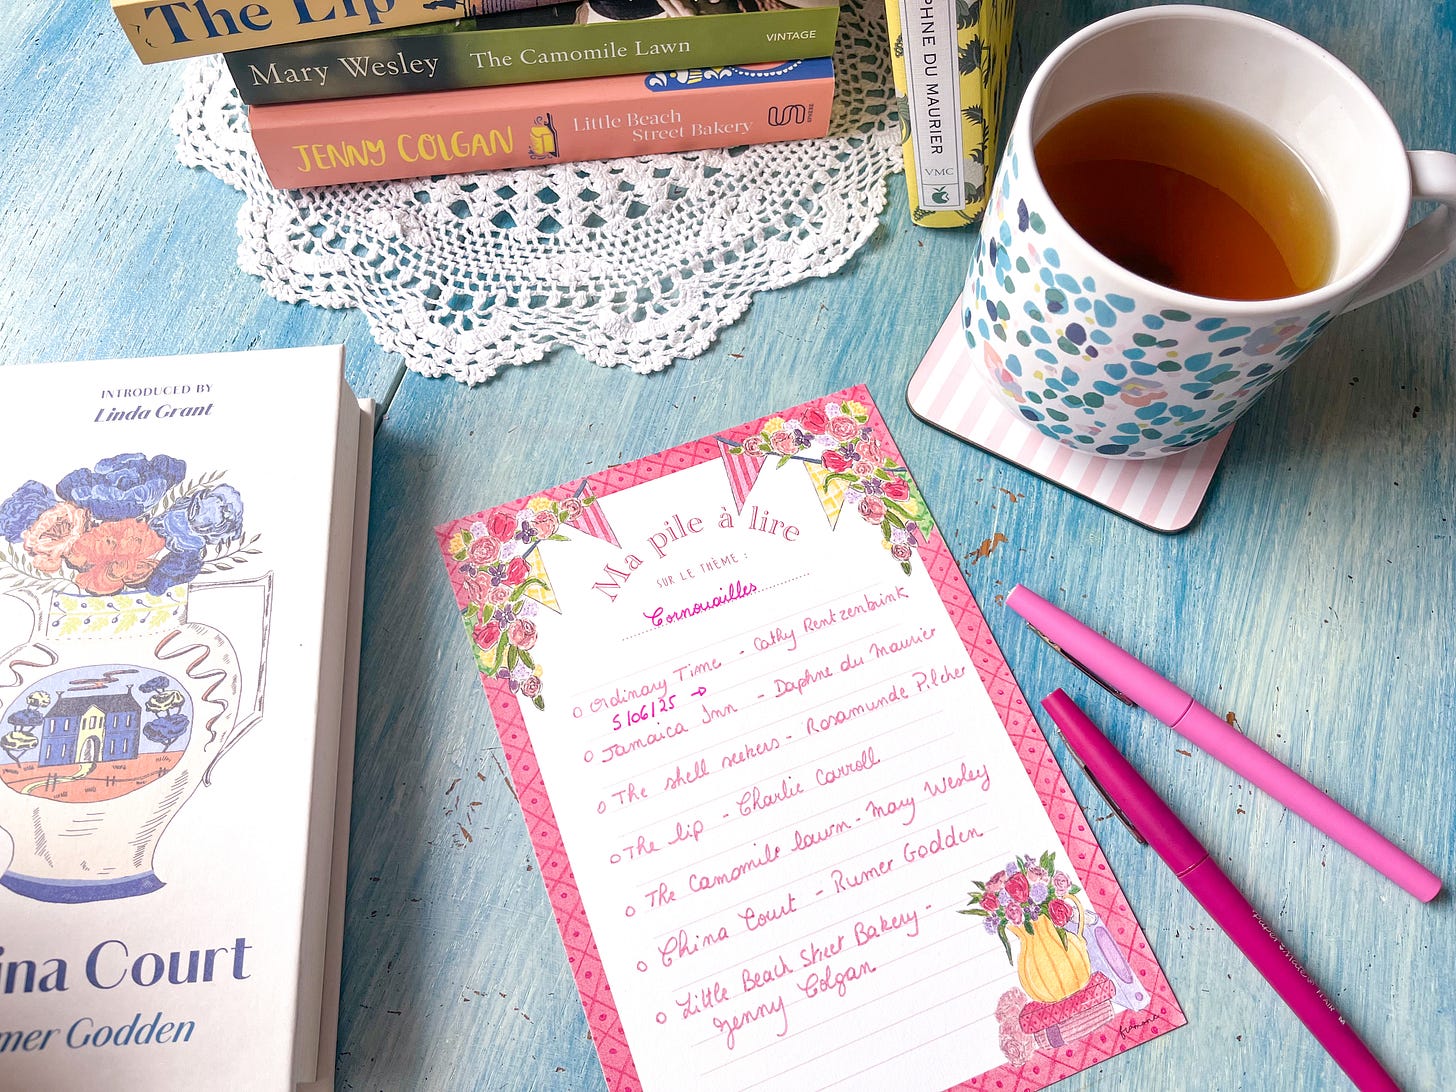 The Lip
Mary Wesley The Camomile Lawn VINTAGE
JENNY COLGAN Little Beach
Street Bakery sphere
PHNE DU MAURIER VMC
INTRODUCED BY
Linda Grant
ina Court
mer Godden
Ma pile à lire
SUR LE THÈME :
Cornouailles
Ordinary Time - Cathy Rentzenbrink
5/06/25 →
Jamaica Inn - Daphne du Maurier
The shell seekers - Rosamunde Pilcher
The lip - Charlie Carroll
The Camomile lawn - Mary Wesley
China Court - Rumer Godden
Little Beach Street Bakery -
Jenny Colgan